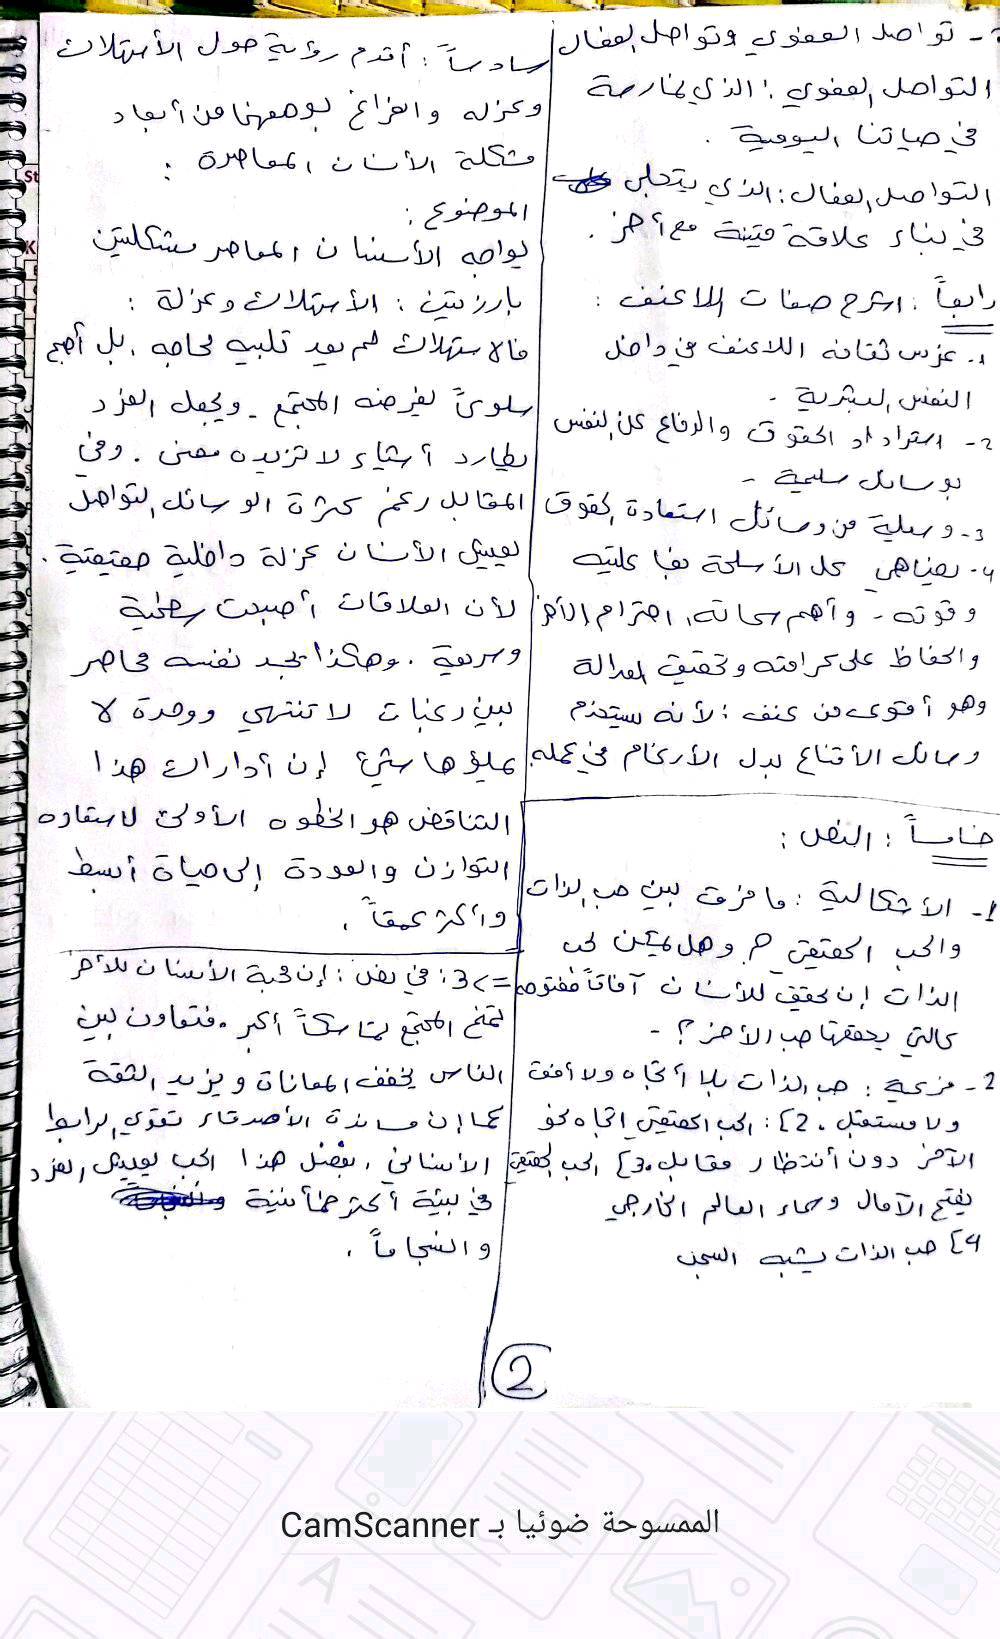 2- تواصل العفوي وتواصل الفعال
التواصل العفوي: الذي نمارسه
في حياتنا اليومية.
التواصل الفعال: الذي يتجلى
في بناء علاقة متينة مع أخر.
رابعاً: اشرح صفات اللاعنف:
1- غرس ثقافة اللاعنف في داخل
النفس البشرية -
2- استرداد الحقوق والدفاع عن النفس
بوسائل سلمية -
3- وسيلة من وسائل استعادة الحقوق
4- يضاهي كل الأسلحة بفاعليته
وقوته - وأهم سماته، احترام الأخر
والحفاظ على كرامته وتحقيق العدالة
وهو أقوى من عنف: لأنه يستخدم
وسائل الأقناع بدل الأرغام في عمله.
خامساً: النص:
1- الأشكالية: ما فرق بين حب الذات
والحب الحقيقي؟ وهل يمكن لحب
الذات إن يحقق للأنسان آفاقاً مفتوحه
كالتي يحققها حب الأخر؟ -
2- فرضية: حب الذات بلا أتجاه ولا أفق
ولا مستقبل. 2]: الحب الحقيقي اتجاه نحو
الآخر دون أنتظار مقابل. 3] الحب الحقيقي
يفتح الآمال وسماء العالم الخارجي
4] حب الذات يشبه السجن
سادساً: أقدم رؤية حول الأستهلاك
وعزله والفراغ بوصفها من أبعاد
مشكلة الأنسان المعاصرة:
الموضوع:
يواجه الأنسان المعاصر مشكلتين
بارزتين: الأستهلاك وعزلة:
فالاستهلاك لم يعد تلبيه لحاجه، بل أصبح
سلوكاً يفرضه المجتمع - ويجعل الفرد
يطارد أشياء لا تزيده معنى. وفي
المقابل رغم كثرة الوسائل التواصل
يعيش الأنسان عزلة داخلية حقيقية.
لأن العلاقات أصبحت سطحية
وسريعة. وهكذا يجد نفسه محاصر
بين رغبات لا تنتهي ووحدة لا
يملؤها شيئ إن أداراك هذا
التناقض هو الخطوه الأولى لاستعاده
التوازن والعودة إلى حياة أبسط
وأكثر عمقاً.
=> 3: في نص: إن محبة الأنسان للأخر
تمنح المجتمع تماسكاً أكبر. فتعاون بين
الناس يخفف المعانات ويزيد الثقة
كما إن مساندة الأصدقاء تقوي الرابط
الأنساني، بفضل هذا الحب يعيش الفرد
في بيئة أكثر طمأنينة
وانسجاماً.
2
الممسوحة ضوئيا بـ CamScanner